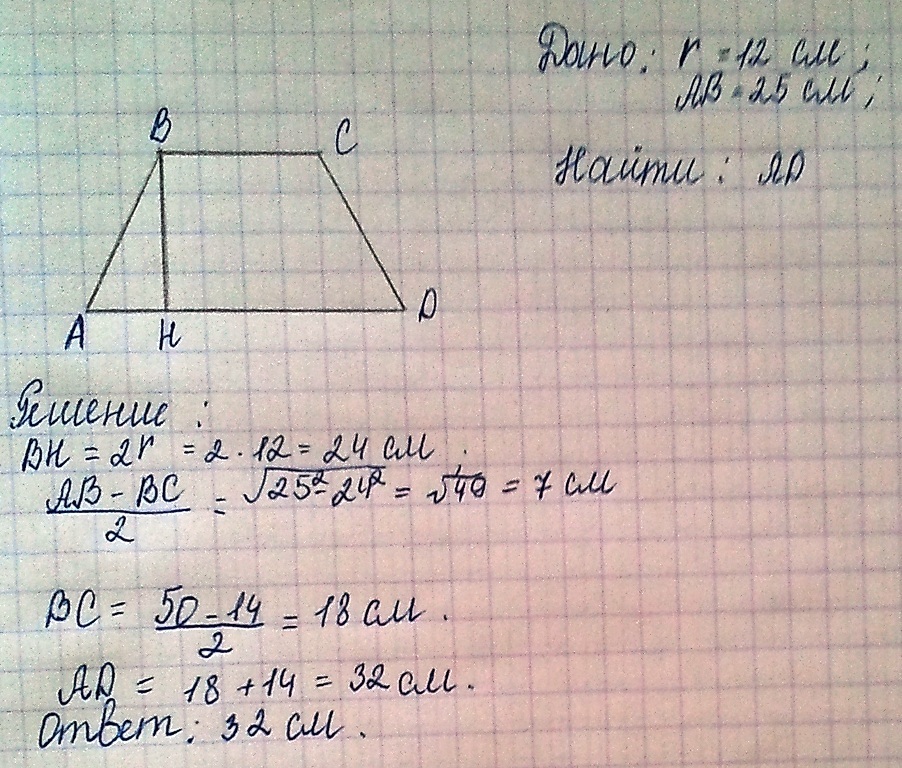 Дано: r = 12 см;
AB = 25 см;
Найти: AD
B
C
A
H
D
Решение:
BH = 2r = 2 · 12 = 24 см.
(AB - BC)/2 = √(25² - 24²) = √49 = 7 см
BC = (50 - 14)/2 = 18 см.
AD = 18 + 14 = 32 см.
Ответ: 32 см.